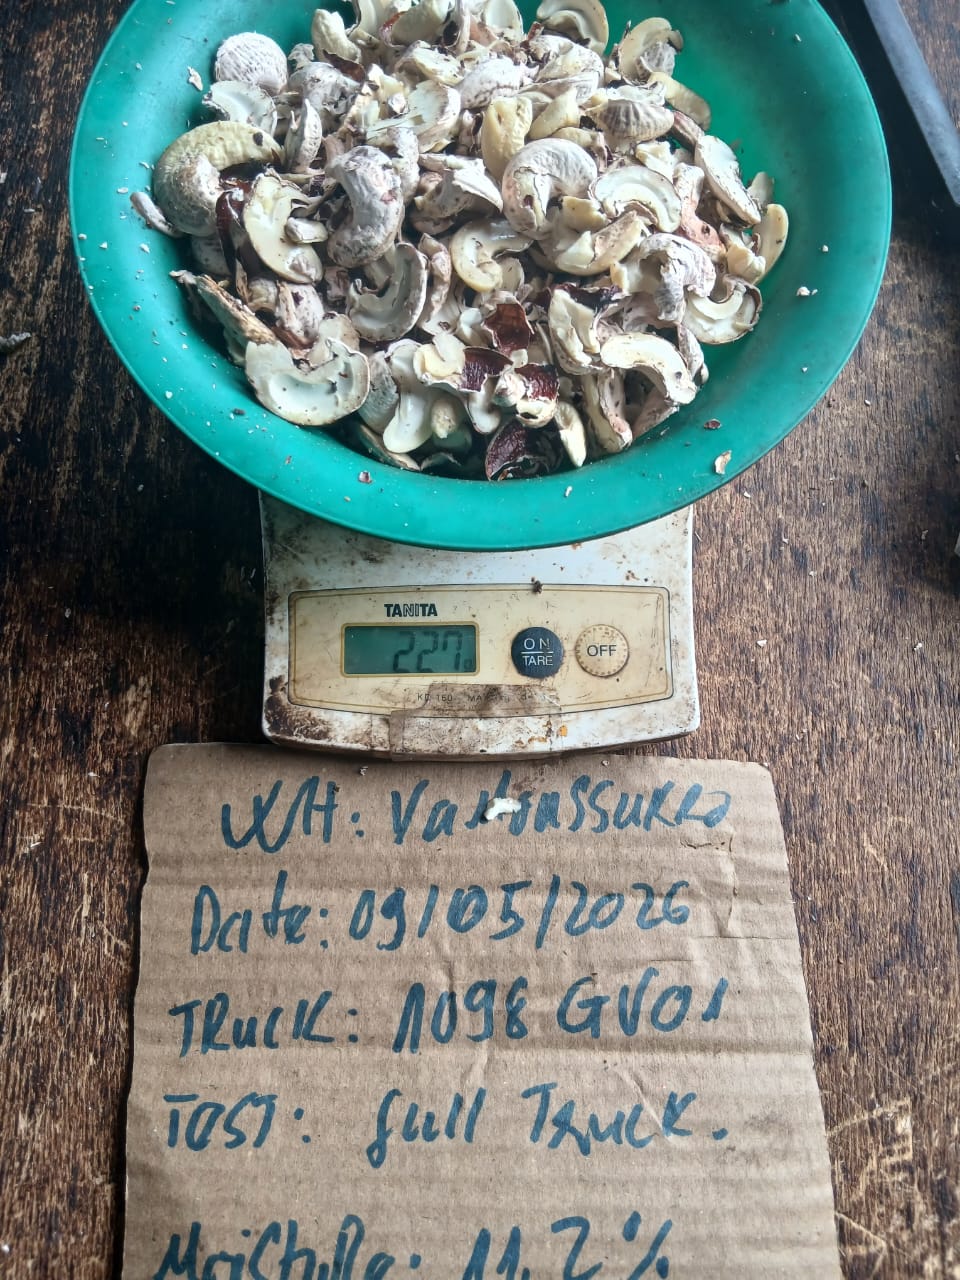 TANITA
227g
ON
TARE
OFF
KD-160
WH:
Date: 09/05/2026
TRUCK: 1098 GV01
TEST: full TRUCK.
Moisture: 11.2%